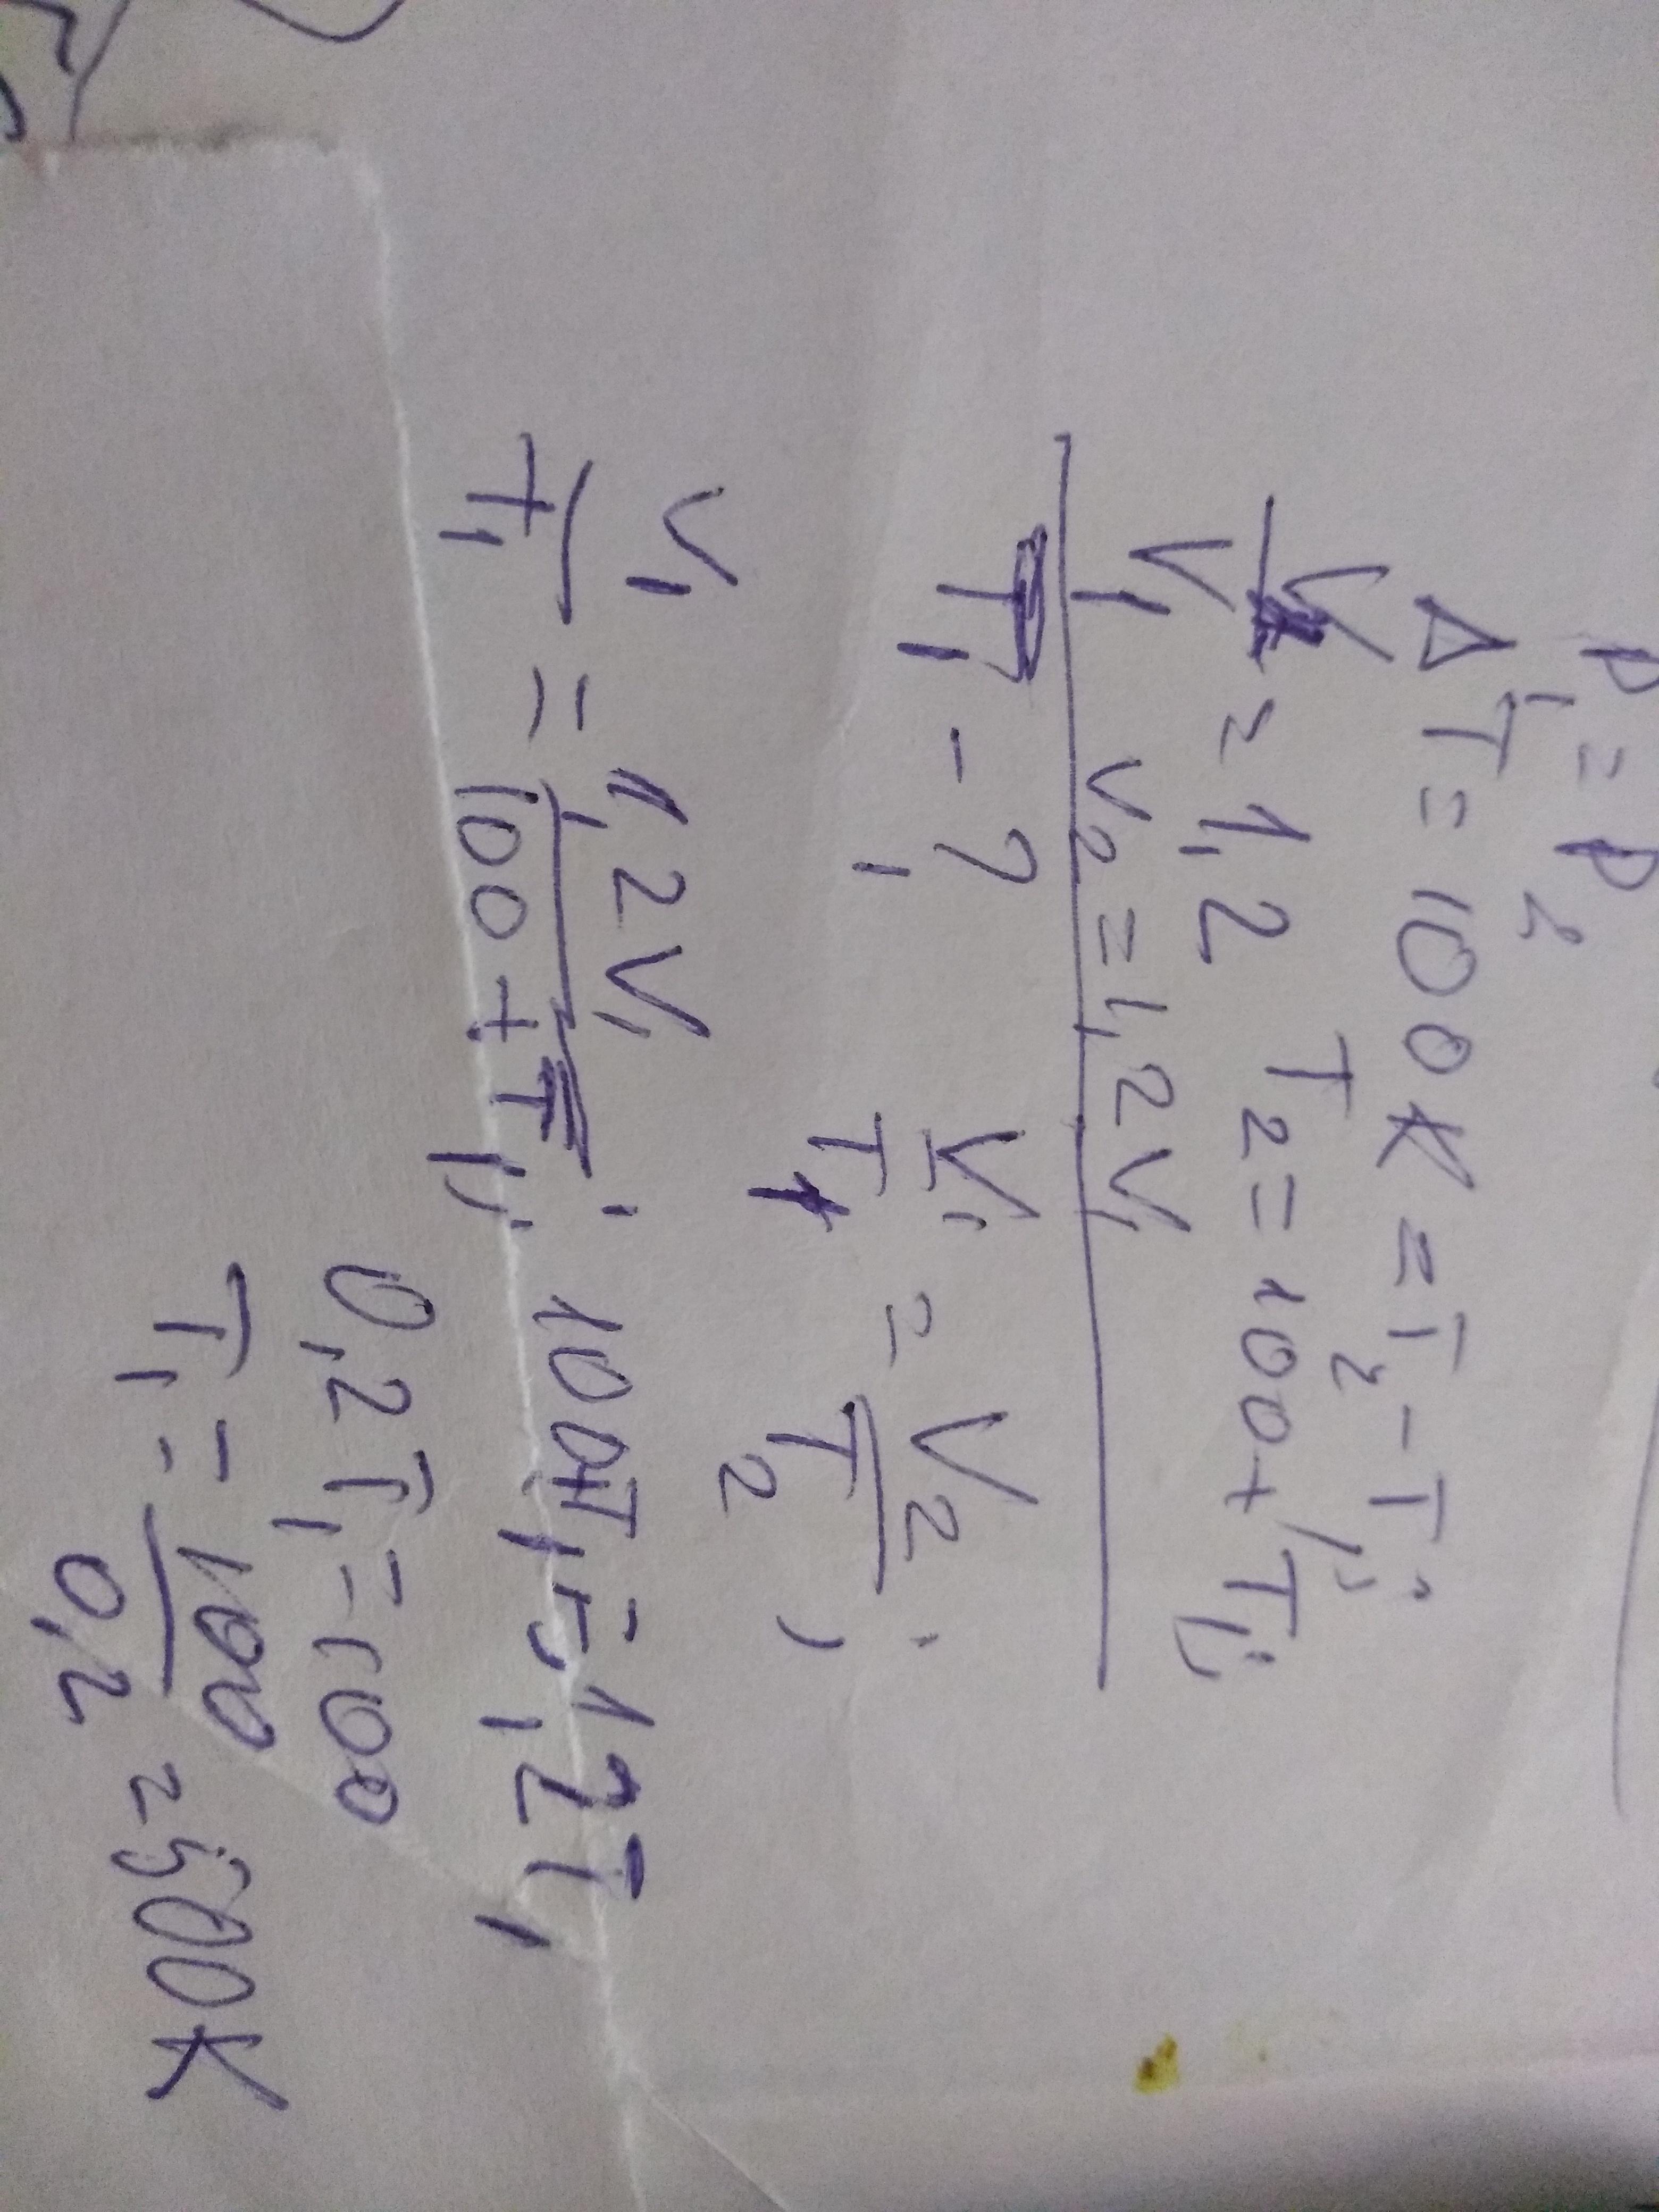 p₁ = p₂
ΔT = 100 K = T₂ - T₁;
V₂/V₁ = 1,2 T₂ = 100 + T₁;
V₂ = 1,2 V₁
T₁ - ?
V₁/T₁ = V₂/T₂;
V₁/T₁ = 1,2 V₁/(100 + T₁); 100 + T₁ = 1,2 T₁
0,2 T₁ = 100
T₁ = 100/0,2 = 500 K